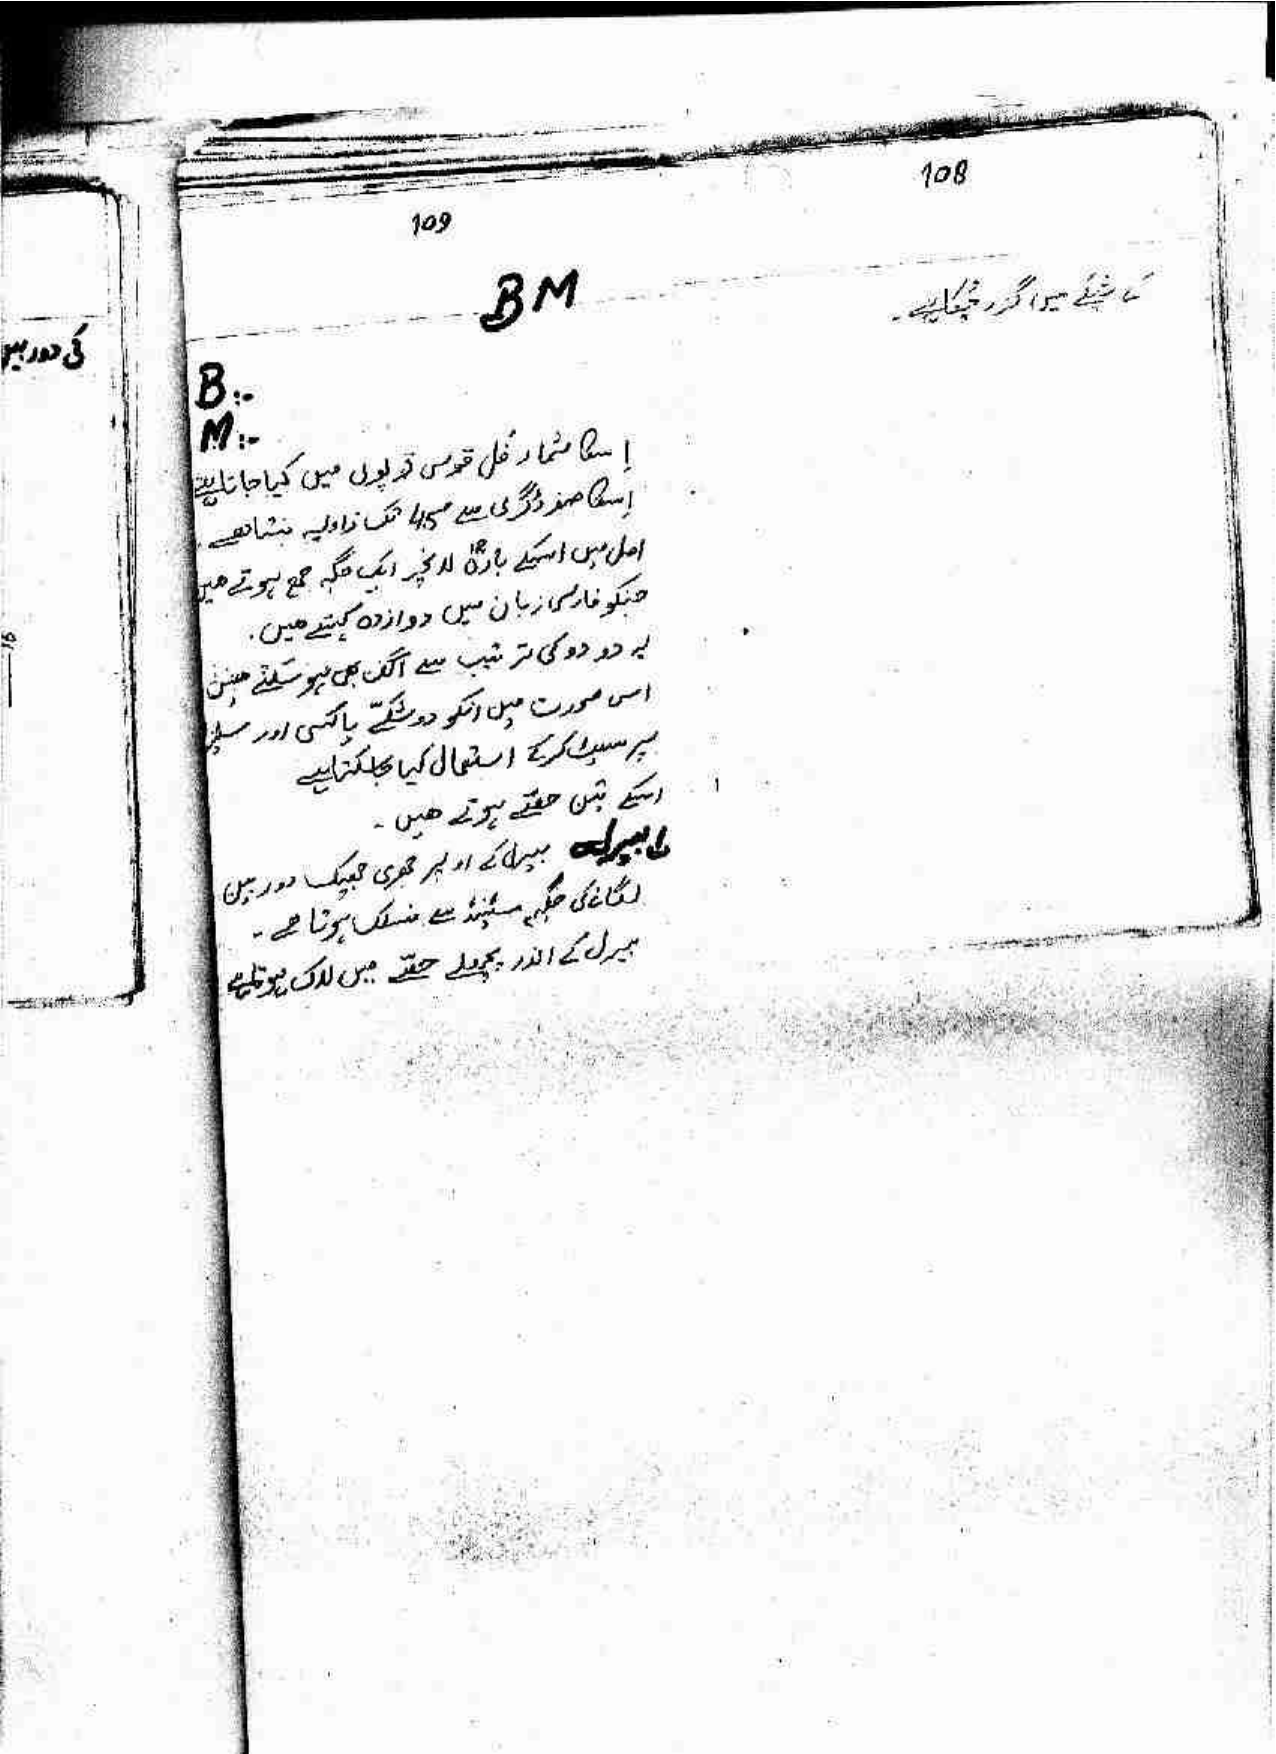 108
کے شیشے میں گزر چکا ہے۔
109
BM
B:-
M:-
اسکا شمار فل قوسی توپوں میں کیا جاتا ہے
اسکا صفر ڈگری سے 45 تک زاویہ بنتا ھے۔
اصل میں اسکے بارہ 12 لانچر ایک جگہ جمع ہوتے ھیں
جنکو فارسی زبان میں دوازدہ کہتے ھیں۔
یہ دو دو کی ترتیب سے الگ بھی ہو سکتے ھیں
اس صورت میں انکو دو شکے یا کسی اور
پر سیٹ کر کے استعمال کیا جا سکتا ہے
اسکے تین حصّے ہوتے ھیں۔
بیرل بیرل کے اوپر جھری جبکہ دوربین
لگانے کی جگہ سٹینڈ سے منسلک ہوتا ھے۔
بیرل کے اندر پچھلے حصّے میں لاک ہوتا ہے
کی دوربین
16